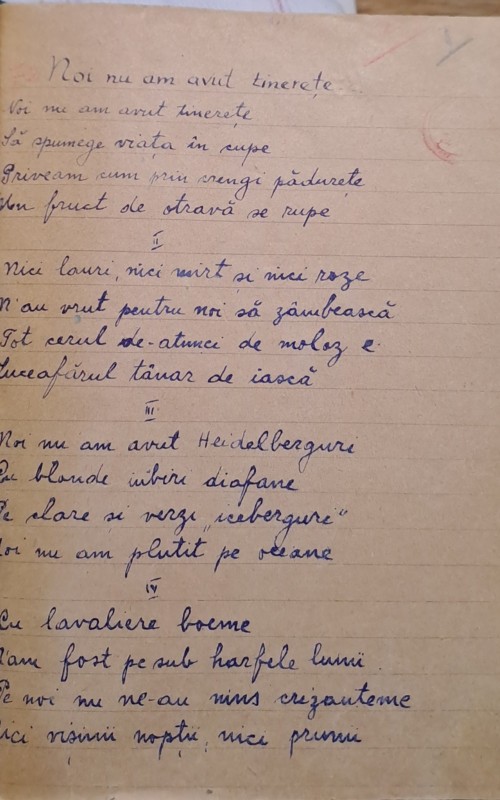 Noi nu am avut tinerețe
Noi nu am avut tinerețe
Să spumege viața în cupe
Priveam cum prin crengi pădurețe
Un fruct de otravă se rupe
II
Nici lauri, nici mirt și nici roze
N'au vrut pentru noi să zâmbească
Tot cerul de-atunci de moloz e
Luceafărul tânar de iască
III
Noi nu am avut Heidelberguri
Cu blonde iubiri diafane
Pe clare si verzi „iceberguri"
Noi nu am plutit pe oceane
IV
Cu lavaliere boeme
N'am fost pe sub harfele lunii.
Pe noi nu ne-au nins crizanteme
Nici vișinii nopții, nici prunii